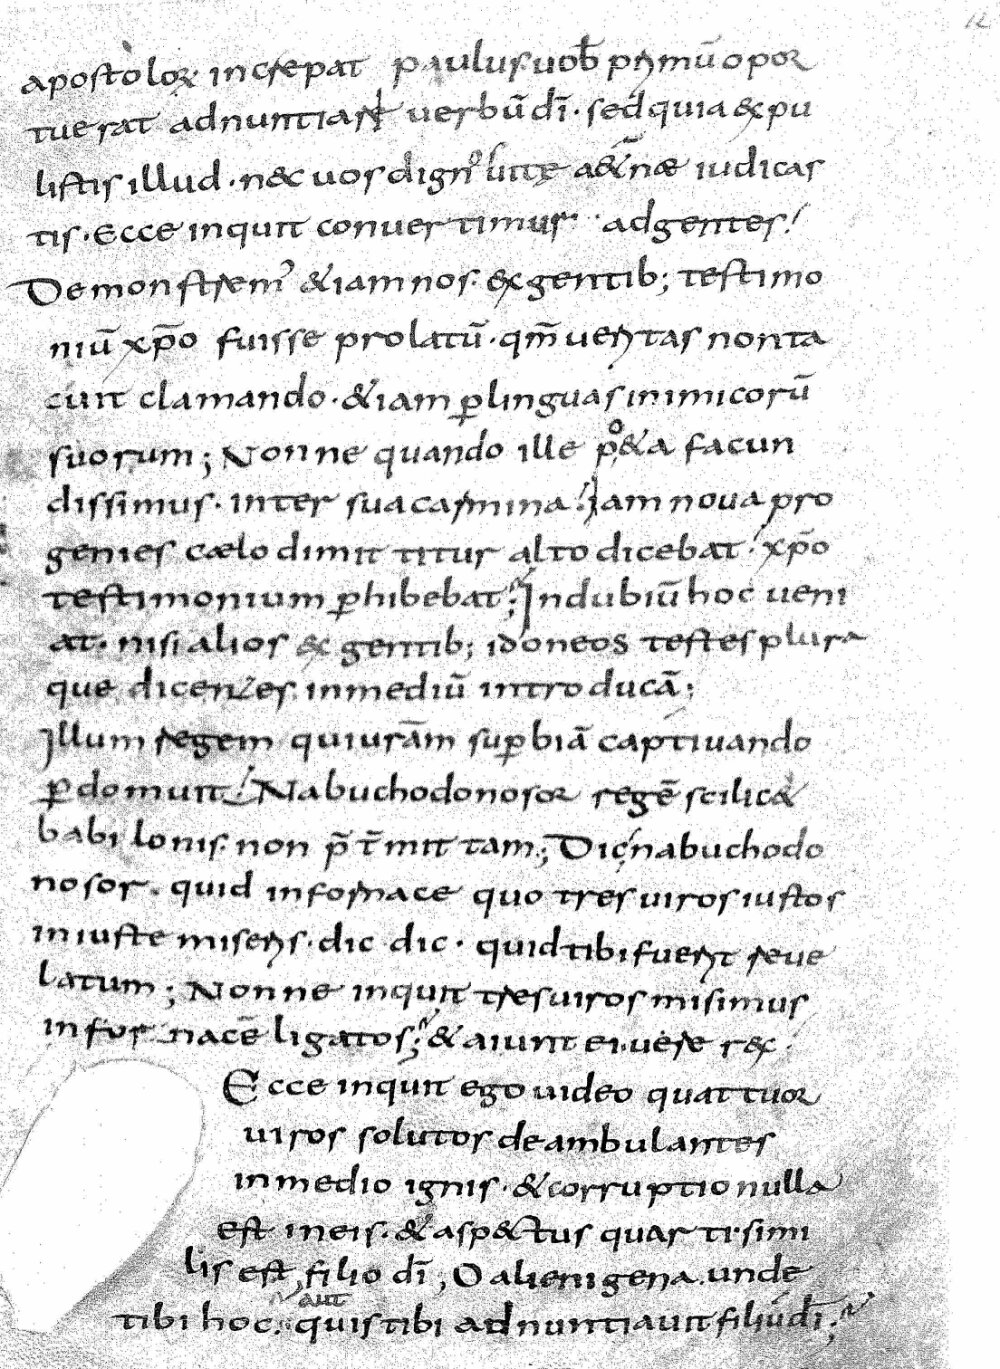 12
apostoloꝝ increpat paulus· uob̄ primū opor
tuerat adnuntiari uerbū dī· sed quia &xpu
listis illud· nec uos dignos uitę a&nae iudicas
tis· Ecce inquit conuertimur· ad gentes!
Demonstrem &iam nos· ex gentib; testimo
niū xp̄o fuisse prolatū· qm̄ ueritas non ta
cuit clamando· &iam ꝑ linguas inimicorū
suorum; Nonne quando ille po&a facun
dissimus· inter sua carmina! Iam noua pro
genies caelo dimittitur alto dicebat· xp̄o
testimonium ꝑhibebat; In dubiū hoc ueni
at· nisi alios ex gentib; idoneos testes plura
que dicentes in mediū introducā;
Illum regem qui urām suꝑbiā captiuando
ꝑdomuit! Nabuchodonosor regē scilic&
babilonis· non p̄t̄mittam; Dic nabuchodo
nosor· quid in fornace quo tres uiros iustos
iniuste miseris· dic dic· quid tibi fuerit reue
latum; Nonne inquit tres uiros misimus
in fornacē ligatos; & aiunt ei· uere rex·
Ecce inquit ego uideo quattuor
uiros solutos deambulantes
in medio ignis· & corruptio nulla
est in eis· & asp&tus quarti· simi
lis est, filio dī; O alienigena· unde
aut
tibi hoc· quis tibi adnuntiauit filiū dī;